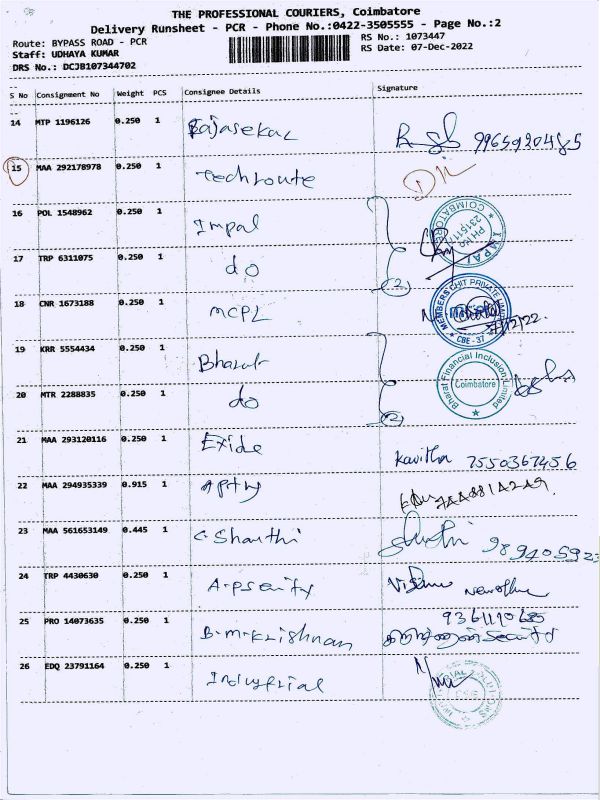 THE PROFESSIONAL COURIERS, Coimbatore
Delivery Runsheet - PCR - Phone No.:0422-3505555 - Page No.:2
Route: BYPASS ROAD - PCR
RS No.: 1073447
Staff: UDHAYA KUMAR
RS Date: 07-Dec-2022
DRS No.: DCJB107344702
S No Consignment No Weight PCS Consignee Details Signature
14 MTP 1196126 0.250 1 Rajasekar
15 MAA 292178978 0.250 1 Techroute
16 POL 1548962 0.250 1 Impal
17 TRP 6311075 0.250 1 do (2)
18 CNR 1673188 0.250 1 MCPL
19 KRR 5554434 0.250 1 Bharat
20 MTR 2288835 0.250 1 do (2)
21 MAA 293120116 0.250 1 Exide Kavitha 7550367456
22 MAA 294935339 0.915 1
23 MAA 561653149 0.445 1 C. Shanthi
24 TRP 4430630 0.250 1
25 PRO 14073635 0.250 1 B.M.Krishnan
26 EDQ 23791164 0.250 1 Industrial
COIMBATORE
IMPAL
MEMBERS CHIT PRIVATE LIMITED
CBE - 37
Bharat Financial Inclusion Limited
Coimbatore